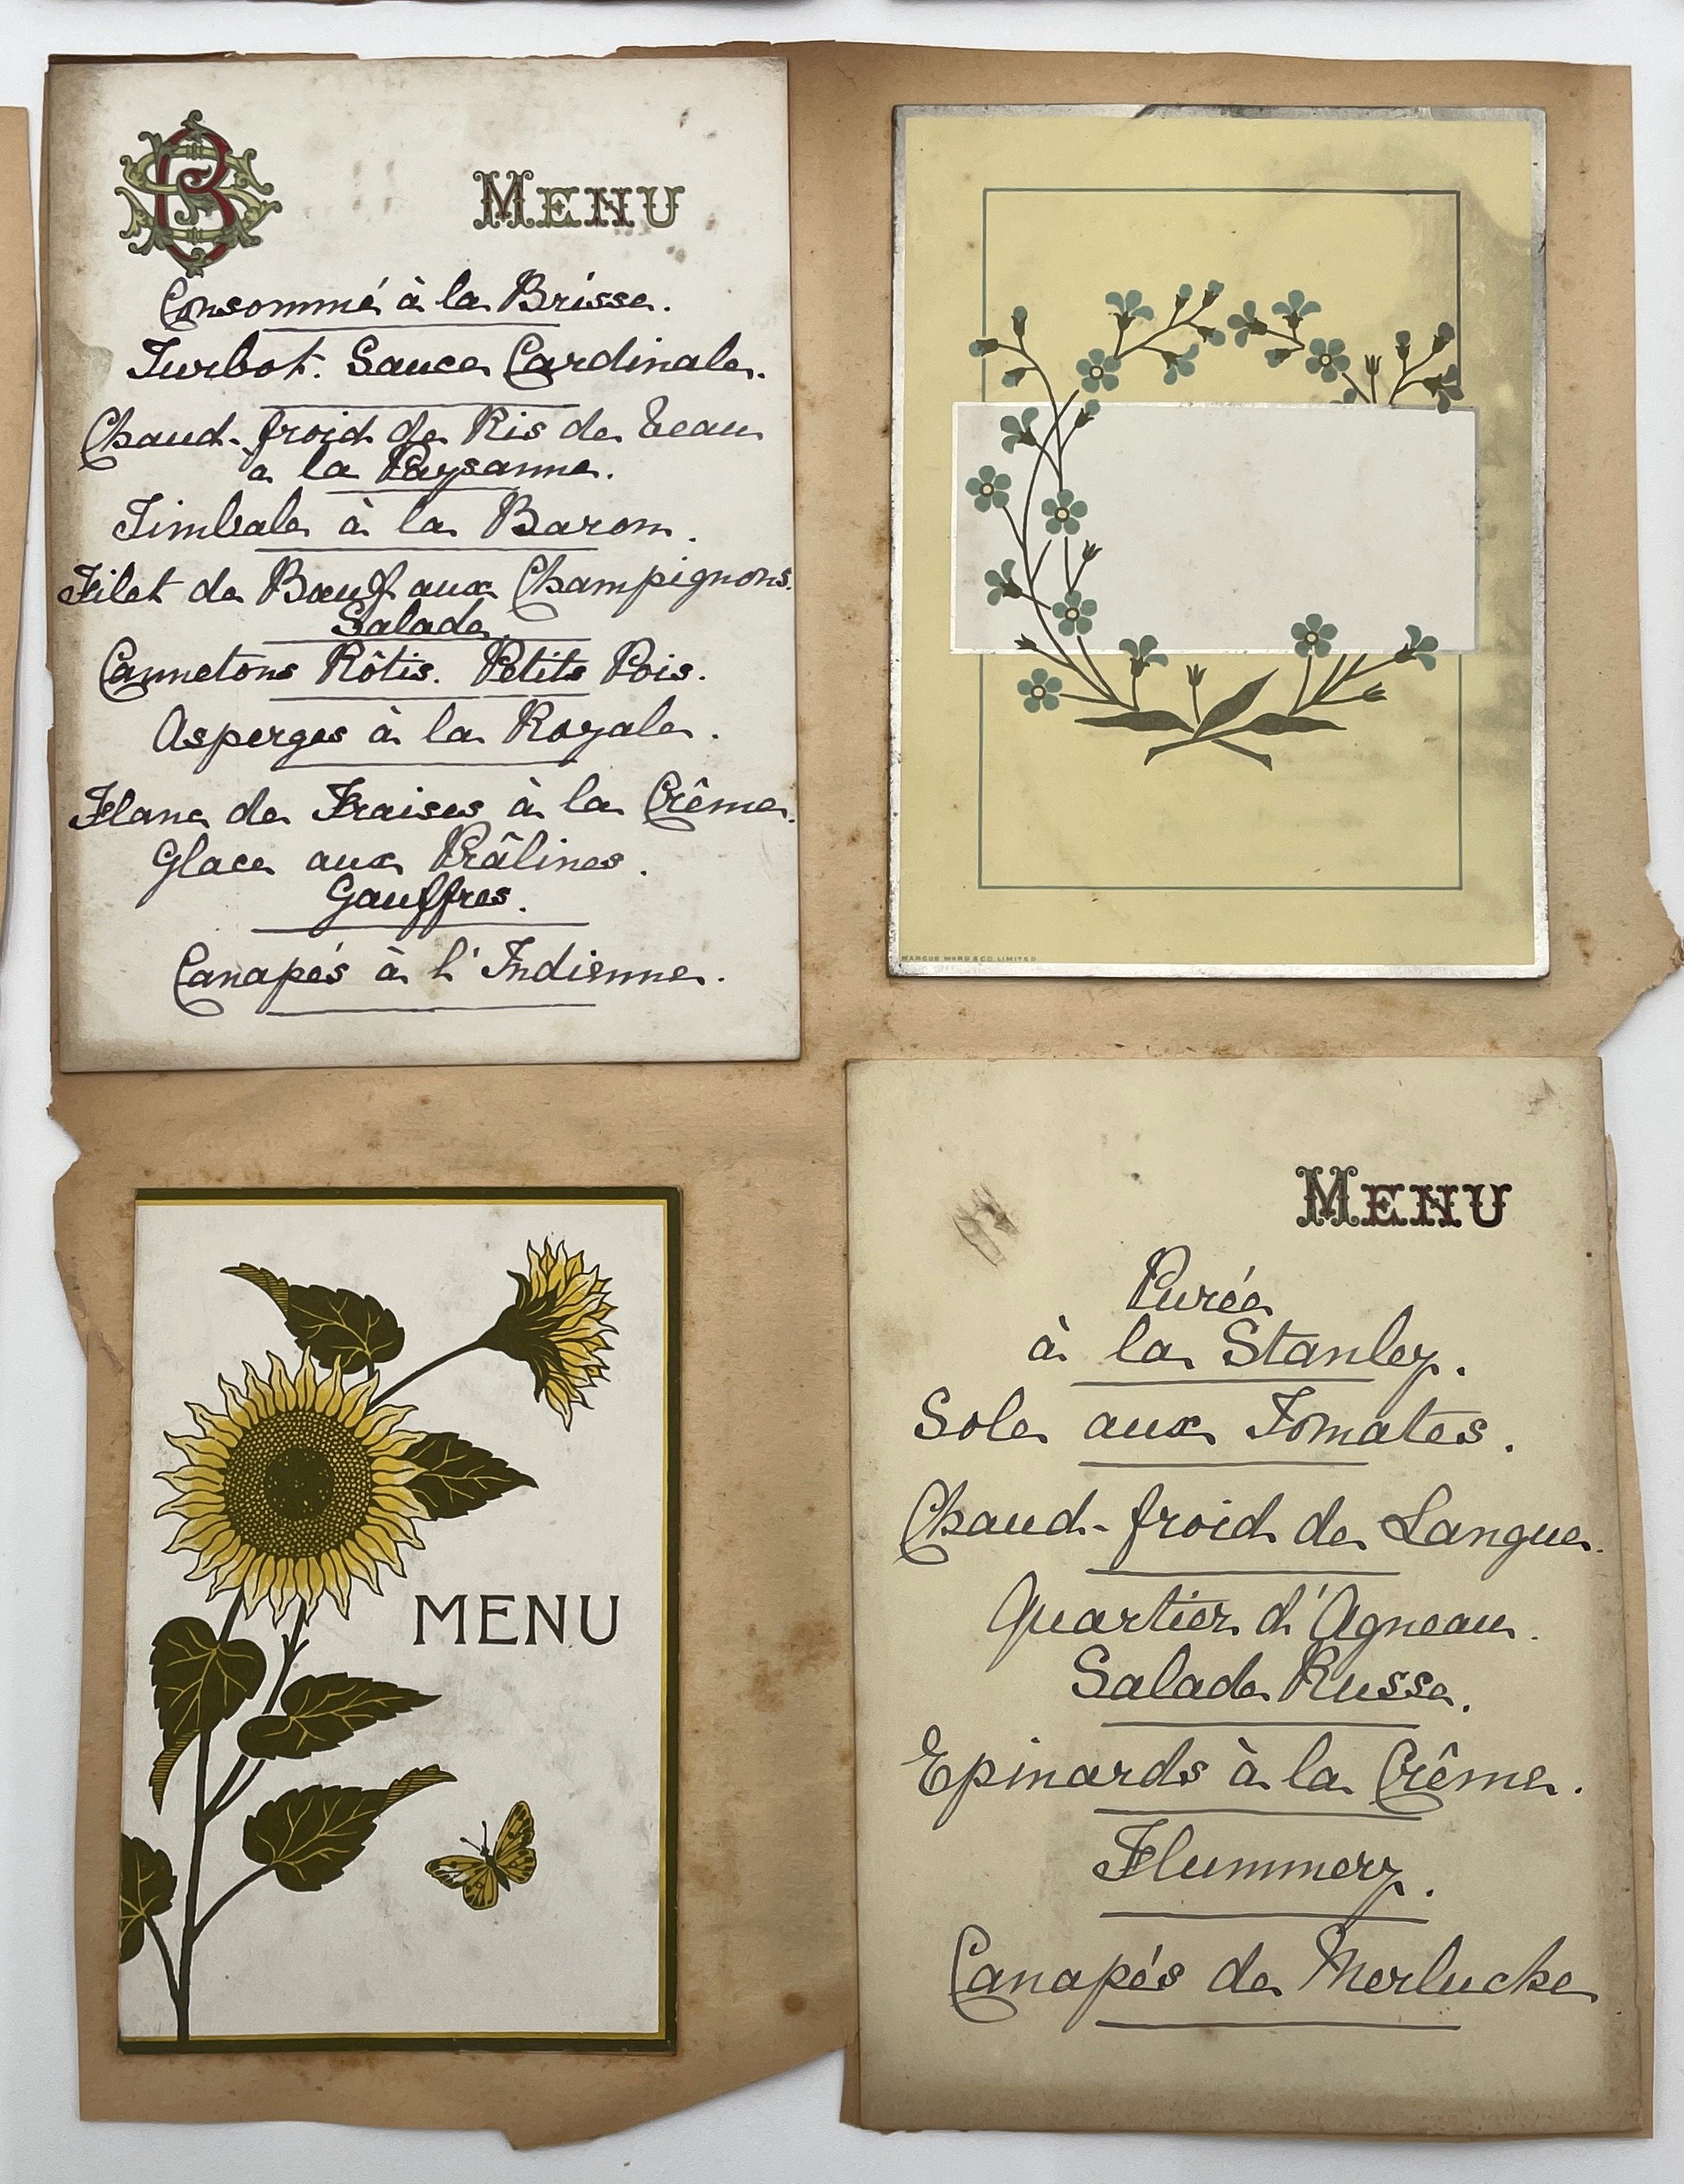 MENU
Consommé à la Brisse.
Turbot. Sauce Cardinale.
Chaud-froid de Ris de Veau
à la Paysanne.
Timbale à la Baron.
Filet de Bœuf aux Champignons.
Salade.
Cannetons Rôtis. Petits Pois.
Asperges à la Royale.
Flanc de Fraises à la Crême.
Glace aux Prâlines.
Gauffres.
Canapés à l'Indienne.
MARCUS WARD & CO. LIMITED
MENU
MENU
Purée
à la Stanley.
Sole aux Tomates.
Chaud-froid de Langue.
Quartier d'Agneau.
Salade Russe.
Epinards à la Crême.
Flummery.
Canapés de Merluche